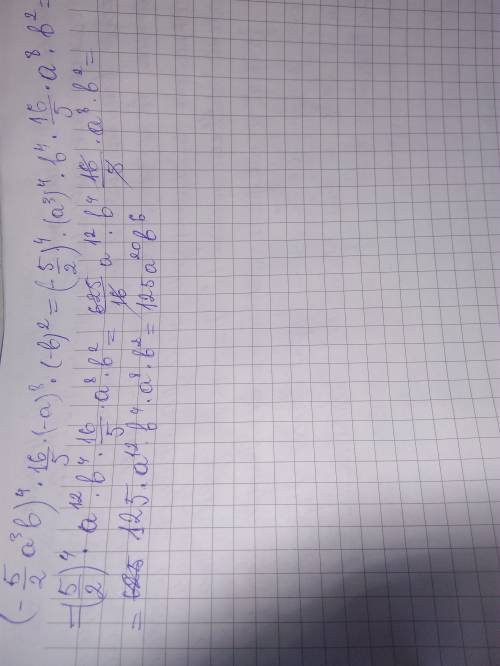 (-5/2 a³b)⁴ · 16/5 · (-a)⁸ · (-b)² = (-5/2)⁴ · (a³)⁴ · b⁴ · 16/5 · a⁸ · b² =
= (5/2)⁴ · a¹² · b⁴ · 16/5 · a⁸ · b² = 625/16 a¹² · b⁴ 16/5 · a⁸ · b² =
= 125 · a¹² · b⁴ · a⁸ · b² = 125a²⁰b⁶